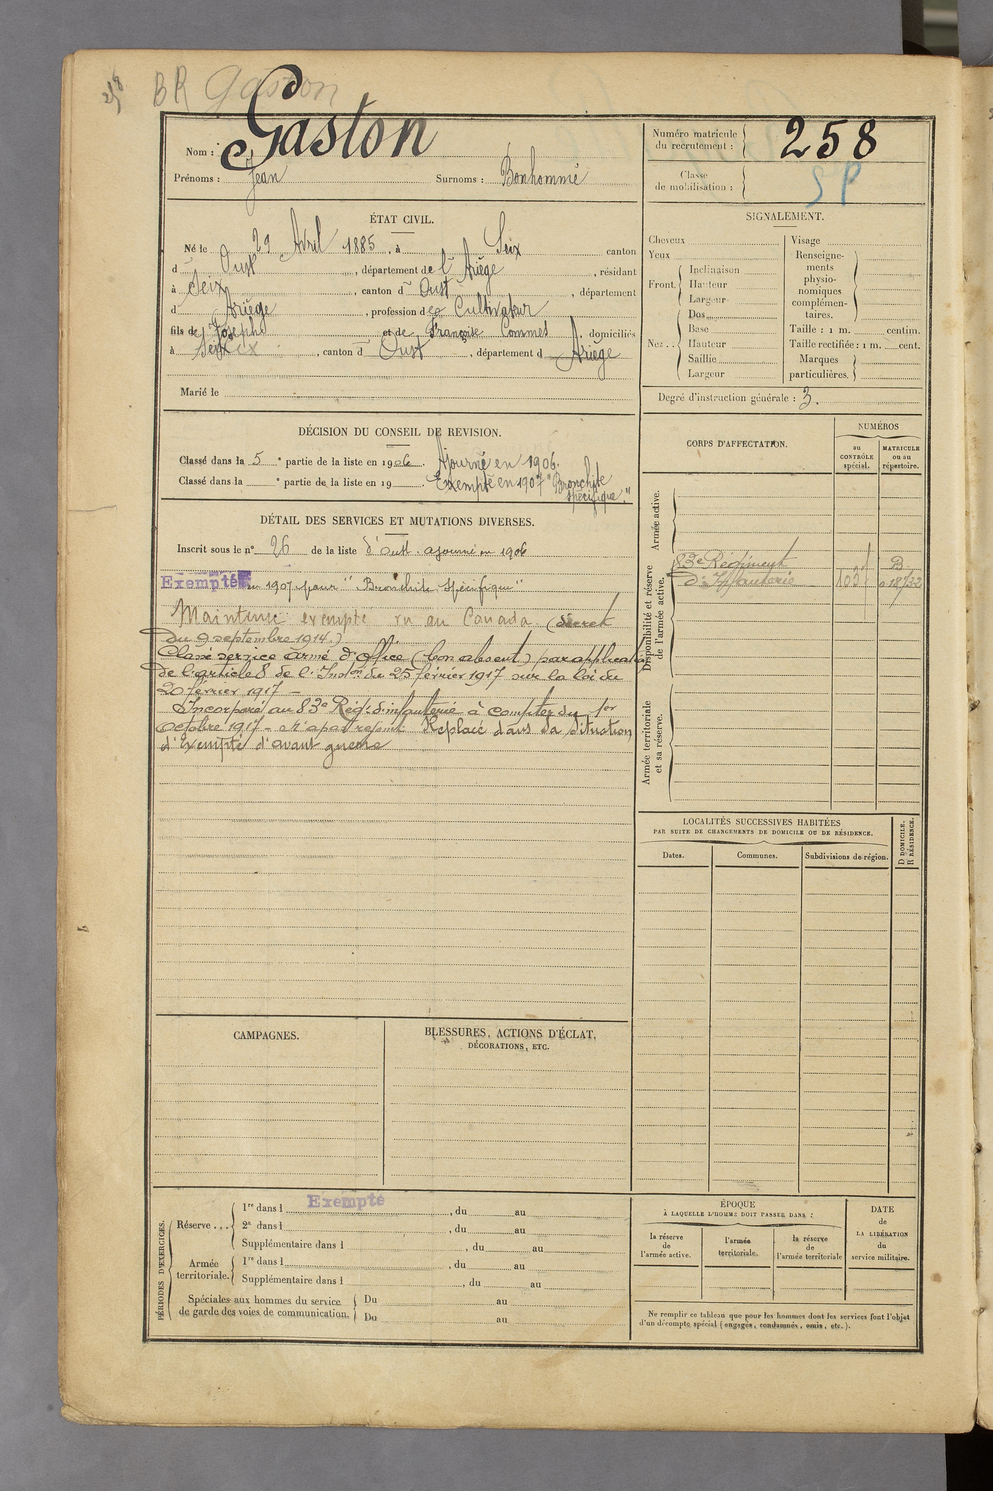 258
BR Gaston
Nom : Gaston
Prénoms : Jean Surnoms : Bonhommé
Numéro matricule du recrutement : 258
Classe de mobilisation : SP
ÉTAT CIVIL.
Né le 29 Avril 1885, à Seix canton
d'Oust, département de l'Ariège, résidant
à Seix, canton d'Oust, département
d Ariège, profession de Cultivateur
fils de Joseph et de Françoise Commes, domiciliés
à Seix, canton d'Oust, département d Ariège
Marié le
SIGNALEMENT.
Cheveux
Yeux
Front. Inclinaison
Hauteur
Largeur
Nez . . Dos
Base
Hauteur
Saillie
Largeur
Visage
Renseignements physionomiques complémentaires.
Taille : 1 m. centim.
Taille rectifiée : 1 m. cent.
Marques particulières.
Degré d'instruction générale : 3.
DÉCISION DU CONSEIL DE REVISION.
Classé dans la 5e partie de la liste en 1906. Ajourné en 1906.
Classé dans la e partie de la liste en 19 . Exempté en 1907 "Bronchite
spécifique."
DÉTAIL DES SERVICES ET MUTATIONS DIVERSES.
Inscrit sous le n° 26 de la liste d'Oust. ajourné en 1906
Exempté en 1907 pour "Bronchite spécifique"
Maintenu exempté vu au Canada (décret
du 9 septembre 1914.)
Classé service armé d'office (bon absent) par application
de l'article 8 de l'Inston du 25 février 1917 sur la loi du
20 février 1917 –
Incorporé au 83e Régt d'infanterie à compter du 1er
octobre 1917 – N'a pas rejoint Replacé dans sa situation
d'Exempté d'avant guerre
CORPS D'AFFECTATION.
NUMÉROS
au CONTRÔLE spécial.
MATRICULE ou au répertoire.
Armée active.
Disponibilité et réserve de l'armée active.
83e Régiment
d'Infanterie
B
Armée territoriale et sa réserve.
LOCALITÉS SUCCESSIVES HABITÉES
PAR SUITE DE CHANGEMENTS DE DOMICILE OU DE RÉSIDENCE.
Dates.
Communes.
Subdivisions de région.
D DOMICILE.
R RÉSIDENCE.
CAMPAGNES.
BLESSURES, ACTIONS D'ÉCLAT,
DÉCORATIONS, ETC.
PÉRIODES D'EXERCICES.
Réserve . . . 1re dans l Exempté , du au
2e dans l , du au
Supplémentaire dans l , du au
Armée territoriale. 1re dans l , du au
Supplémentaire dans l , du au
Spéciales aux hommes du service de garde des voies de communication. Du au
Du au
ÉPOQUE
À LAQUELLE L'HOMME DOIT PASSER DANS :
la réserve de l'armée active.
l'armée territoriale.
la réserve de l'armée territoriale
DATE de LA LIBÉRATION du service militaire.
Ne remplir ce tableau que pour les hommes dont les services font l'objet
d'un décompte spécial (engagés, condamnés, omis, etc.).